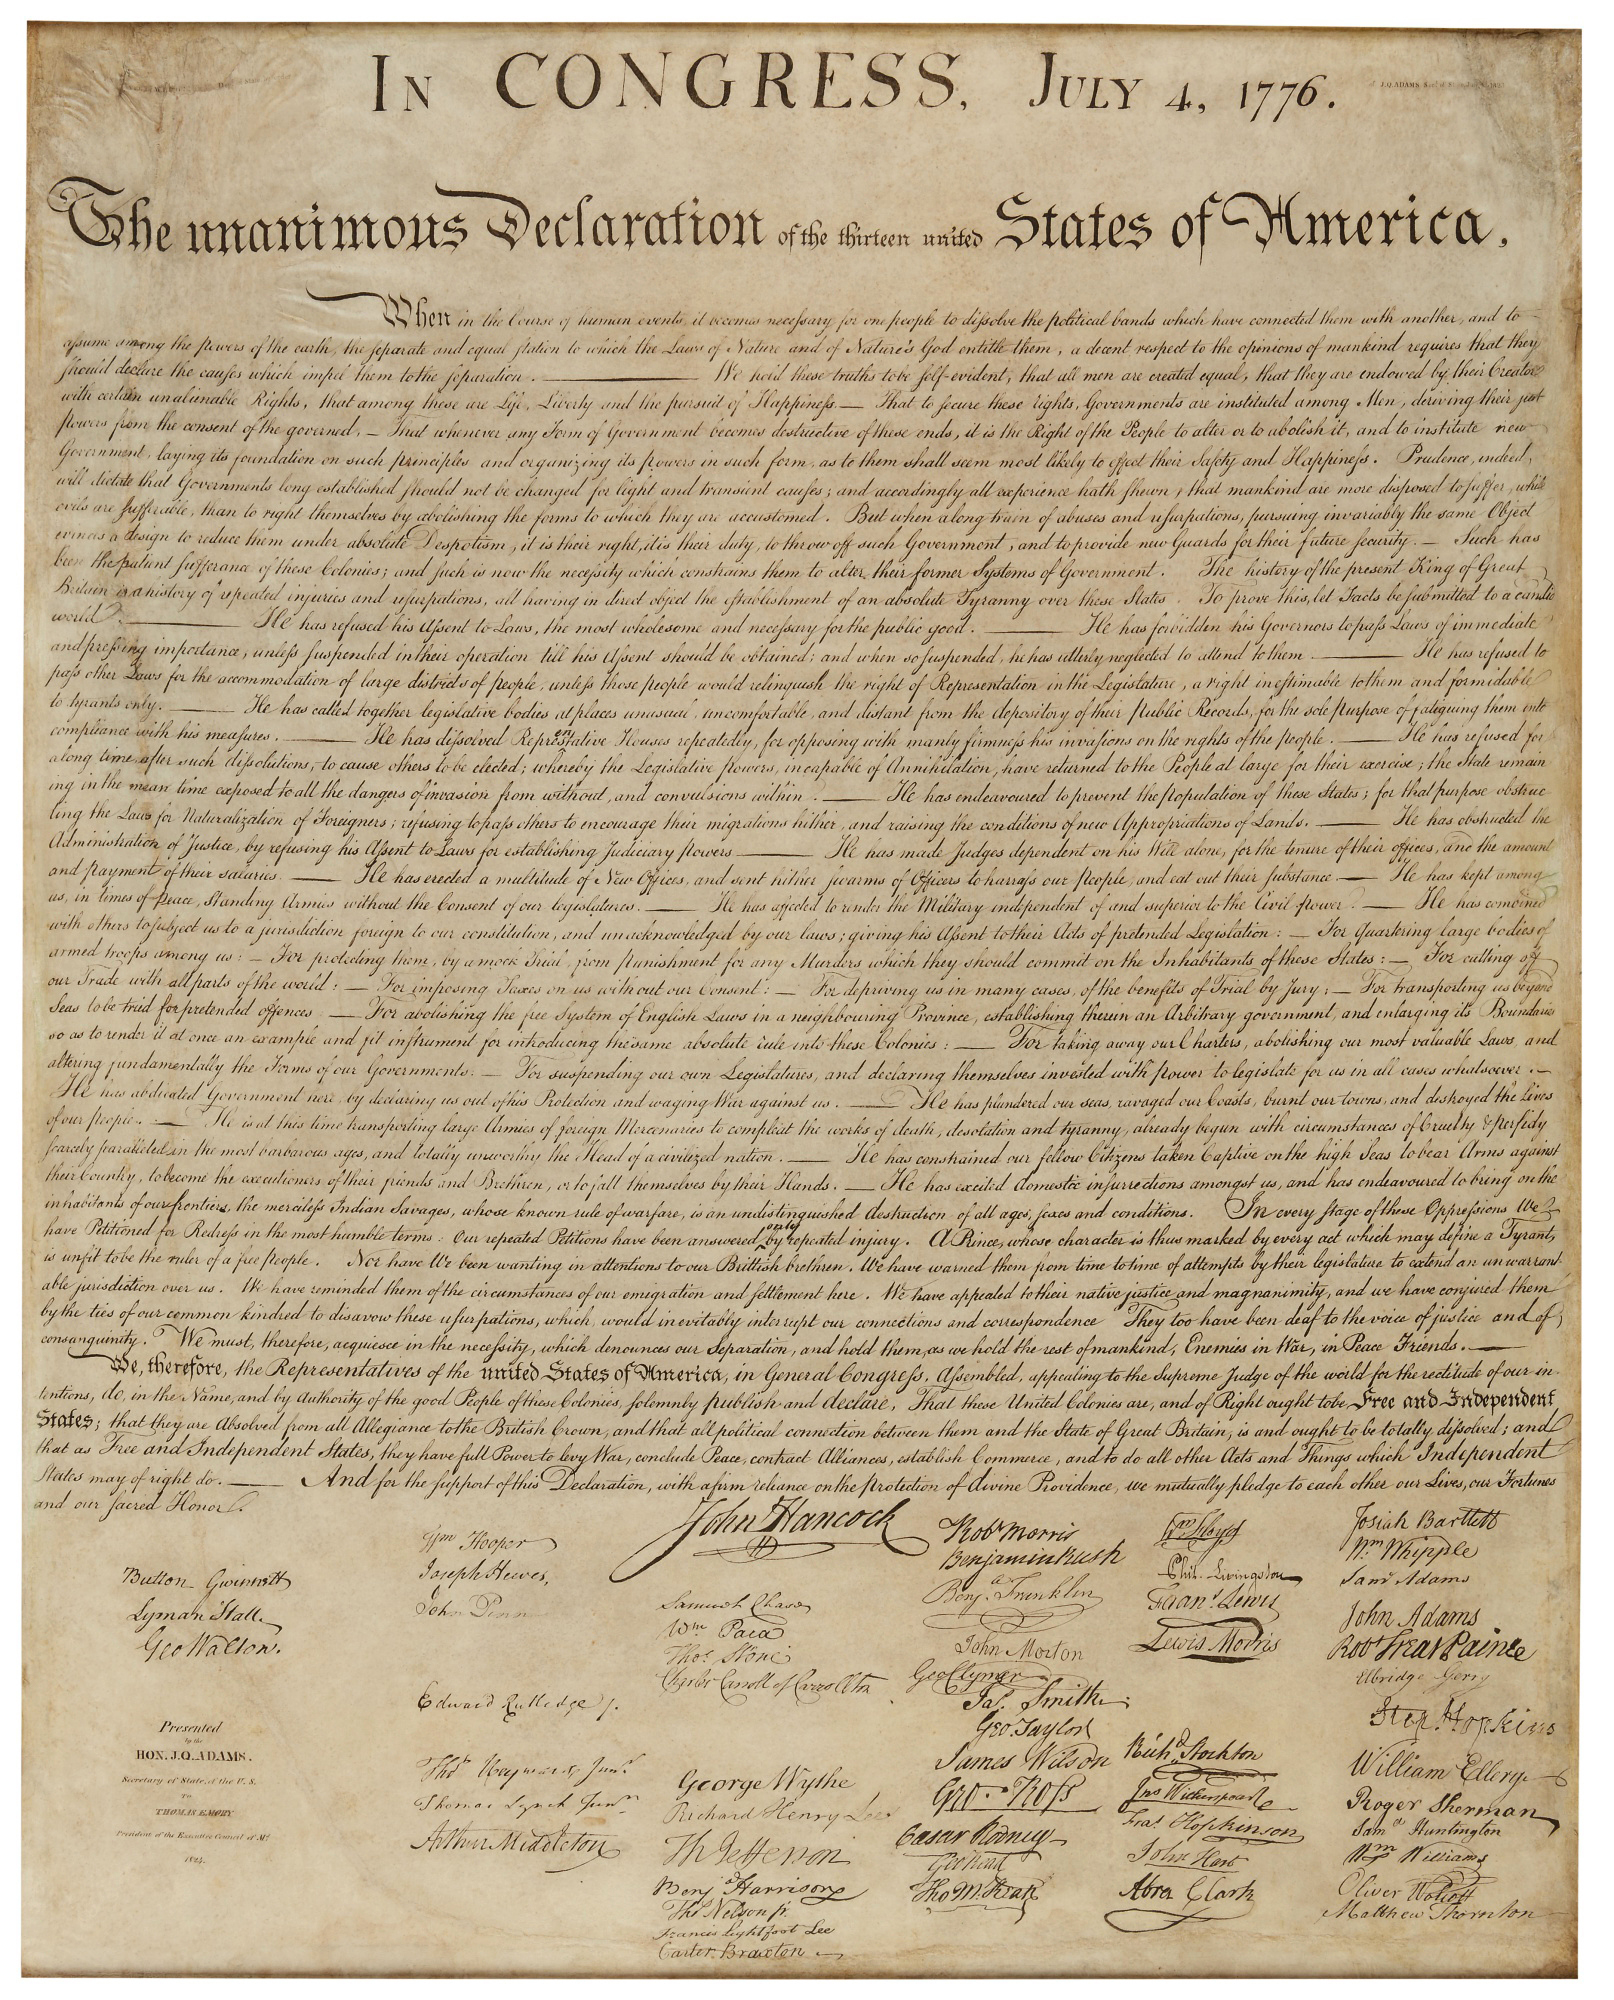 IN CONGRESS, JULY 4, 1776.
The unanimous Declaration of the thirteen united States of America,
When in the Course of human events, it becomes necessary for one people to dissolve the political bands which have connected them with another, and to
assume among the powers of the earth, the separate and equal station to which the Laws of Nature and of Nature's God entitle them, a decent respect to the opinions of mankind requires that they
should declare the causes which impel them to the separation. ——— We hold these truths to be self-evident, that all men are created equal, that they are endowed by their Creator
with certain unalienable Rights, that among these are Life, Liberty and the pursuit of Happiness. — That to secure these rights, Governments are instituted among Men, deriving their just
powers from the consent of the governed, — That whenever any Form of Government becomes destructive of these ends, it is the Right of the People to alter or to abolish it, and to institute new
Government, laying its foundation on such principles and organizing its powers in such form, as to them shall seem most likely to effect their Safety and Happiness. Prudence, indeed,
will dictate that Governments long established should not be changed for light and transient causes; and accordingly all experience hath shewn, that mankind are more disposed to suffer, while
evils are sufferable, than to right themselves by abolishing the forms to which they are accustomed. But when a long train of abuses and usurpations, pursuing invariably the same Object
evinces a design to reduce them under absolute Despotism, it is their right, it is their duty, to throw off such Government, and to provide new Guards for their future security. — Such has
been the patient sufferance of these Colonies; and such is now the necessity which constrains them to alter their former Systems of Government. The history of the present King of Great
Britain is a history of repeated injuries and usurpations, all having in direct object the establishment of an absolute Tyranny over these States. To prove this, let Facts be submitted to a candid
world. ——— He has refused his Assent to Laws, the most wholesome and necessary for the public good. ——— He has forbidden his Governors to pass Laws of immediate
and pressing importance, unless suspended in their operation till his Assent should be obtained; and when so suspended, he has utterly neglected to attend to them. ——— He has refused to
pass other Laws for the accommodation of large districts of people, unless those people would relinquish the right of Representation in the Legislature, a right inestimable to them and formidable
to tyrants only. ——— He has called together legislative bodies at places unusual, uncomfortable, and distant from the depository of their Public Records, for the sole purpose of fatiguing them into
compliance with his measures. ——— He has dissolved Representative Houses repeatedly, for opposing with manly firmness his invasions on the rights of the people. ——— He has refused for
a long time, after such dissolutions, to cause others to be elected; whereby the Legislative powers, incapable of Annihilation, have returned to the People at large for their exercise; the State remain
ing in the mean time exposed to all the dangers of invasion from without, and convulsions within. ——— He has endeavoured to prevent the population of these States; for that purpose obstruc
ting the Laws for Naturalization of Foreigners; refusing to pass others to encourage their migrations hither, and raising the conditions of new Appropriations of Lands. ——— He has obstructed the
Administration of Justice, by refusing his Assent to Laws for establishing Judiciary powers ——— He has made Judges dependent on his Will alone, for the tenure of their offices, and the amount
and payment of their salaries. ——— He has erected a multitude of New Offices, and sent hither swarms of Officers to harrass our people, and eat out their substance. — He has kept among
us, in times of peace, Standing Armies without the Consent of our legislatures. ——— He has affected to render the Military independent of and superior to the Civil power. — He has combined
with others to subject us to a jurisdiction foreign to our constitution, and unacknowledged by our laws; giving his Assent to their Acts of pretended Legislation: — For Quartering large bodies of
armed troops among us: — For protecting them, by a mock Trial, from punishment for any Murders which they should commit on the Inhabitants of these States: — For cutting off
our Trade with all parts of the world: — For imposing Taxes on us without our Consent: — For depriving us in many cases, of the benefits of Trial by Jury: — For transporting us beyond
Seas to be tried for pretended offences — For abolishing the free System of English Laws in a neighbouring Province, establishing therein an Arbitrary government, and enlarging its Boundaries
so as to render it at once an example and fit instrument for introducing the same absolute rule into these Colonies: — For taking away our Charters, abolishing our most valuable Laws, and
altering fundamentally the Forms of our Governments: — For suspending our own Legislatures, and declaring themselves invested with power to legislate for us in all cases whatsoever. —
He has abdicated Government here, by declaring us out of his Protection and waging War against us. — He has plundered our seas, ravaged our Coasts, burnt our towns, and destroyed the Lives
of our people. — He is at this time transporting large Armies of foreign Mercenaries to compleat the works of death, desolation and tyranny, already begun with circumstances of Cruelty & perfidy
scarcely paralleled in the most barbarous ages, and totally unworthy the Head of a civilized nation. — He has constrained our fellow Citizens taken Captive on the high Seas to bear Arms against
their Country, to become the executioners of their friends and Brethren, or to fall themselves by their Hands. — He has excited domestic insurrections amongst us, and has endeavoured to bring on the
inhabitants of our frontiers, the merciless Indian Savages, whose known rule of warfare, is an undistinguished destruction of all ages, sexes and conditions. In every stage of these Oppressions We
have Petitioned for Redress in the most humble terms: Our repeated Petitions have been answered only by repeated injury. A Prince, whose character is thus marked by every act which may define a Tyrant,
is unfit to be the ruler of a free people. Nor have We been wanting in attentions to our Brittish brethren. We have warned them from time to time of attempts by their legislature to extend an unwarrant
able jurisdiction over us. We have reminded them of the circumstances of our emigration and settlement here. We have appealed to their native justice and magnanimity, and we have conjured them
by the ties of our common kindred to disavow these usurpations, which, would inevitably interrupt our connections and correspondence They too have been deaf to the voice of justice and of
consanguinity. We must, therefore, acquiesce in the necessity, which denounces our Separation, and hold them, as we hold the rest of mankind, Enemies in War, in Peace Friends. —
We, therefore, the Representatives of the united States of America, in General Congress, Assembled, appealing to the Supreme Judge of the world for the rectitude of our in
tentions, do, in the Name, and by Authority of the good People of these Colonies, solemnly publish and declare, That these United Colonies are, and of Right ought to be Free and Independent
States; that they are Absolved from all Allegiance to the British Crown, and that all political connection between them and the State of Great Britain, is and ought to be totally dissolved; and
that as Free and Independent States, they have full Power to levy War, conclude Peace, contract Alliances, establish Commerce, and to do all other Acts and Things which Independent
States may of right do. — And for the support of this Declaration, with a firm reliance on the protection of divine Providence, we mutually pledge to each other our Lives, our Fortunes
and our sacred Honor.
Button Gwinnett
Lyman Hall.
Geo Walton.
Wm Hooper
Joseph Hewes,
John Penn
Edward Rutledge /.
Thos Heyward Junr.
Thomas Lynch Junr.
Arthur Middleton
John Hancock
Samuel Chase
Wm. Paca
Thos. Stone
Charles Carroll of Carrollton
George Wythe
Richard Henry Lee
Th Jefferson
Benj Harrison
Thos Nelson jr.
Francis Lightfoot Lee
Carter Braxton
Robt Morris
Benjamin Rush
Benj. Franklin
John Morton
Geo Clymer
Jas. Smith
Geo. Taylor
James Wilson
Geo. Ross
Caesar Rodney
Geo Read
Tho M:Kean
Wm Floyd
Phil. Livingston
Frans. Lewis
Lewis Morris
Richd. Stockton
Jno Witherspoon
Fras. Hopkinson
John Hart
Abra Clark
Josiah Bartlett
Wm. Whipple
Saml Adams
John Adams
Robt Treat Paine
Elbridge Gerry
Step. Hopkins
William Ellery
Roger Sherman
Samel Huntington
Wm. Williams
Oliver Wolcott
Matthew Thornton
Presented
by the
HON. J.Q. ADAMS.
Secretary of State, of the U.S.
TO
THOMAS EMORY
President of the Executive Council of Md.
1824.